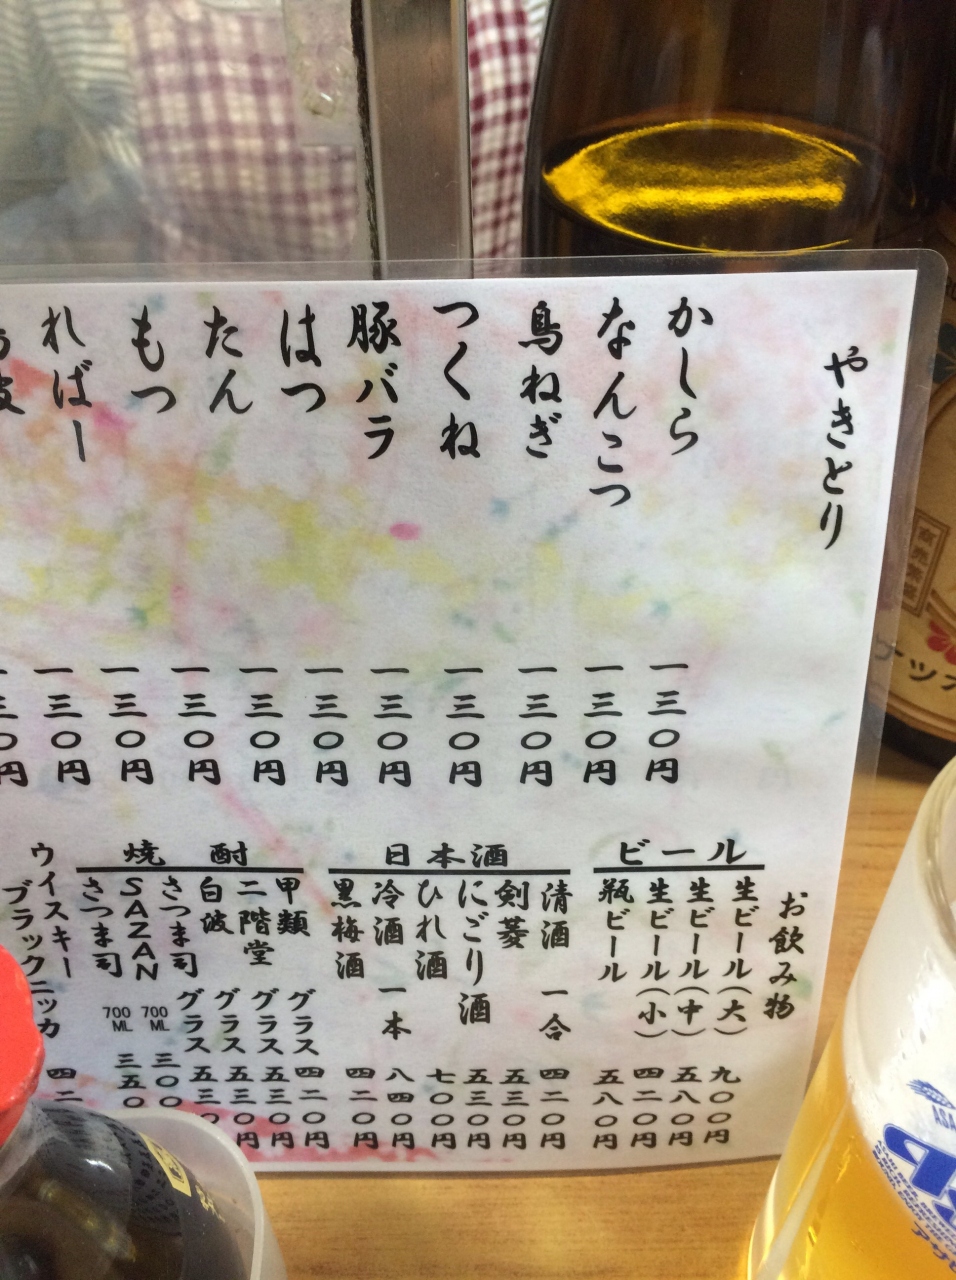 やきとり
かしら 一三〇円
なんこつ 一三〇円
鳥ねぎ 一三〇円
つくね 一三〇円
豚バラ 一三〇円
はつ 一三〇円
たん 一三〇円
もつ 一三〇円
ればー 一三〇円
皮 一三〇円
一三〇円
お飲み物
ビール
生ビール(大) 九〇〇円
生ビール(中) 五八〇円
生ビール(小) 四二〇円
瓶ビール 五八〇円
日本酒
清酒 一合 四二〇円
剣菱 五三〇円
にごり酒 五三〇円
ひれ酒 七〇〇円
冷酒 一本 八四〇円
黒梅酒 四二〇円
焼酎
甲類 グラス 四二〇円
二階堂 グラス 五三〇円
白波 グラス 五三〇円
さつま司 グラス 五三〇
SAZAN 700ML 三〇〇
さつま司 700ML 三五〇
ウイスキー
ブラックニッカ 四二